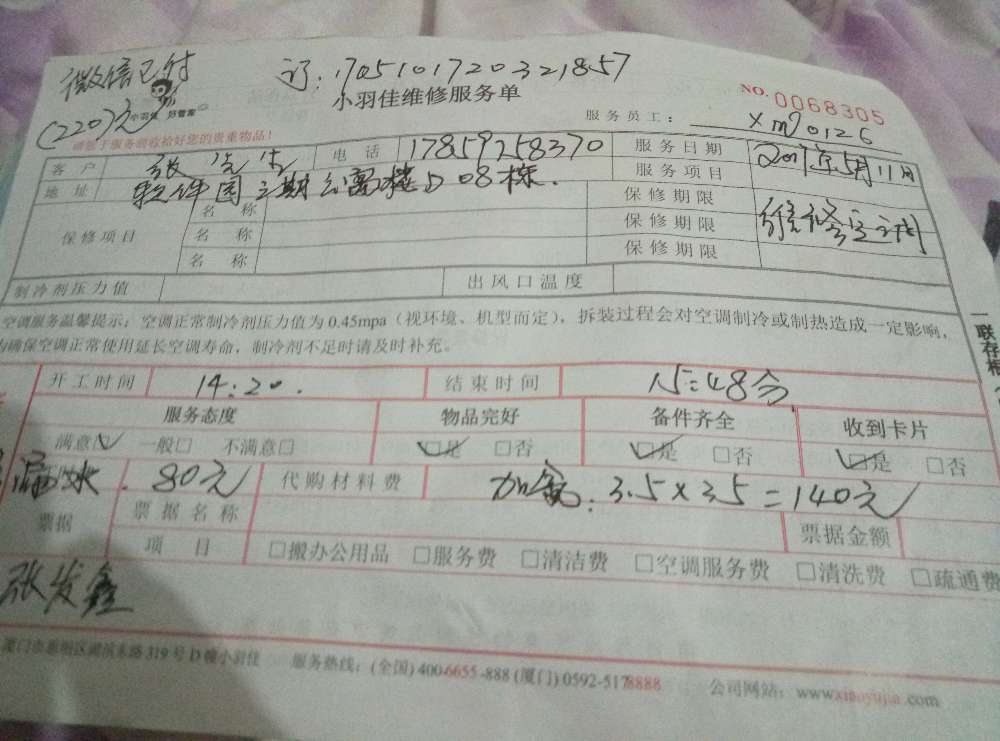 微信已付
订:1705101720321857
(220)元
小羽佳 好管家
小羽佳维修服务单
NO. 0068305
请您于服务前收拾好您的贵重物品!
服务员工: xm90126
客户 张先生 电话 17859758370 服务日期 2017年5月11日
地址 软件园三期公寓楼D08栋. 服务项目 维修空调
保修项目
名称 保修期限
名称 保修期限
名称 保修期限
制冷剂压力值 出风口温度
空调服务温馨提示:空调正常制冷剂压力值为0.45mpa(视环境、机型而定),拆装过程会对空调制冷或制热造成一定影响,
为确保空调正常使用延长空调寿命,制冷剂不足时请及时补充。
一联存根
开工时间 14:20. 结束时间 15:48分
服务态度 物品完好 备件齐全 收到卡片
满意☑ 一般□ 不满意□ ☑是 □否 ☑是 □否 ☑是 □否
漏水. 80元 代购材料费 加氟. 3.5×3.5=140元
票据 票据名称 票据金额
项目 □搬办公用品 □服务费 □清洁费 □空调服务费 □清洗费 □疏通费
张发鑫
厦门市思明区湖滨东路319号D幢小羽佳 服务热线:(全国)400-6655-888(厦门)0592-5178888 公司网站:www.xiaoyujia.com